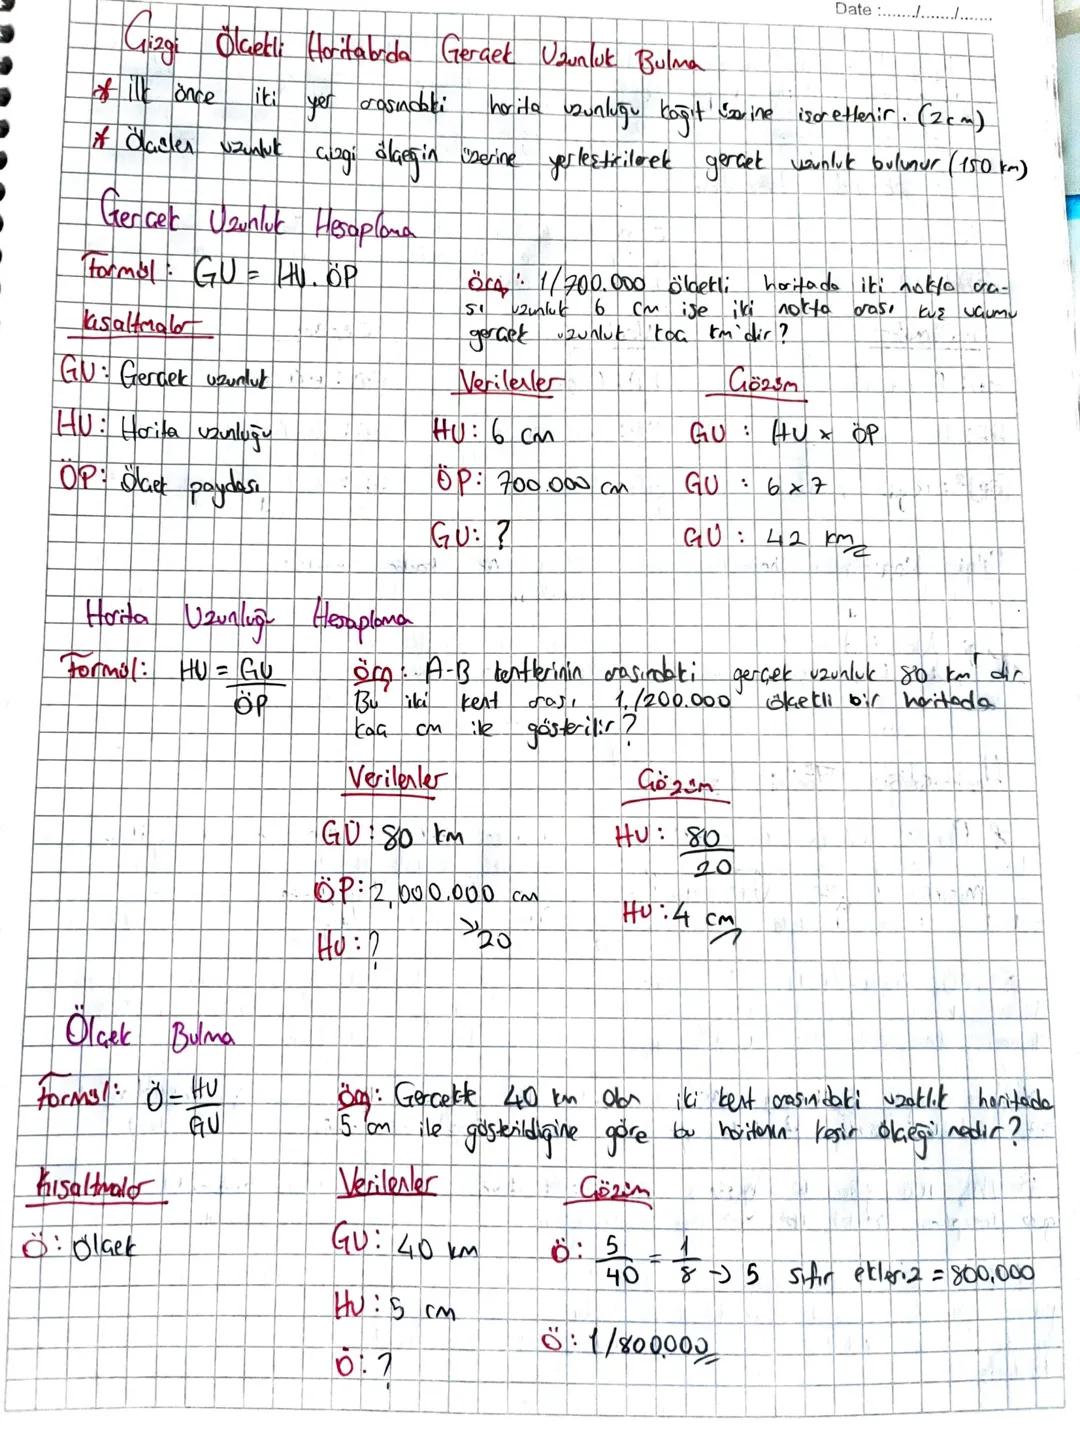 Date :......./......./.......
Çizgi Ölçekli Haritalarda Gerçek Uzunluk Bulma
* İlk önce iki yer arasındaki harita uzunluğu kağıt üzerine işaretlenir. (2cm)
* Ölçülen uzunluk çizgi ölçeğin üzerine yerleştirilerek gerçek uzunluk bulunur (150 km)
Gerçek Uzunluk Hesaplama
Formül: GU = HU. ÖP
Kısaltmalar
GU: Gerçek uzunluk
HU: Harita uzunluğu
ÖP: Ölçek paydası
Örn: 1/700.000 ölçekli haritada iki nokta ara-
sı uzunluk 6 cm ise iki nokta arası kuş uçumu
gerçek uzunluk kaç km'dir?
Verilenler
HU: 6 cm
ÖP: 700.000 cm
GU: ?
Çözüm
GU : HU x ÖP
GU : 6 x 7
GU : 42 km
Harita Uzunluğu Hesaplama
Formül: HU = GU
ÖP
Örn: A-B kentlerinin arasındaki gerçek uzunluk 80 km'dir
Bu iki kent arası 1./200.000 ölçekli bir haritada
kaç cm ile gösterilir?
Verilenler
GU: 80 km
ÖP: 2,000.000 cm
20
HU: ?
Çözüm
HU: 80
20
HU: 4 cm
Ölçek Bulma
Formül: Ö = HU
GU
Örn: Gerçekte 40 km olan iki kent arasındaki uzaklık haritada
5 cm ile gösterildiğine göre bu haritanın kesir ölçeği nedir?
Kısaltmalar
Ö: Ölçek
Verilenler
GU: 40 km
HU: 5 cm
Ö: ?
Çözüm
Ö: 5 = 1
40 8 → 5 sıfır ekleriz = 800.000
Ö: 1/800000